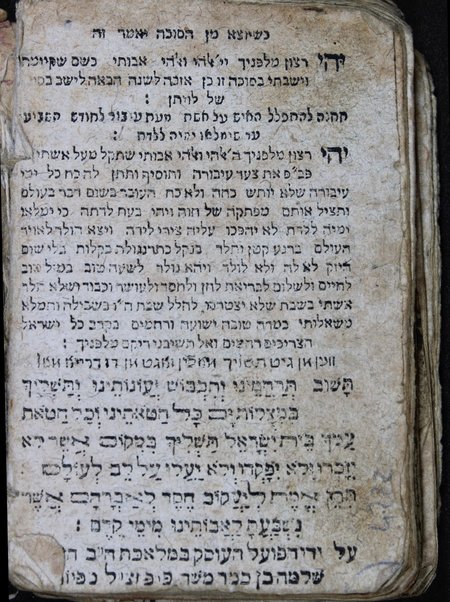 כשיוצא מן הסוכה יאמר זה
יהי רצון מלפניך יי׳ אלהי ואלהי אבותי כשם שקיימתי
וישבתי בסוכה זו כן אזכה לשנה הבאה לישב בסוכת
של לויתן :
תחנה להתפלל האיש על אשתו מעת עיבור לחודש השביעי
עד שימלאו ימיה ללדת :
יהי רצון מלפניך ה׳ אלהי ואלהי אבותי שתקל מעל אשתי
פב״פ את צער עיבורה ותוסיף ותתן לה כח כל ימי
עיבורה שלא יותש כחה ולא כח העובר בשום דבר בעולם
ותציל אותם מפתקה של חוה ויהי בעת לדתה כי ימלאו
ימיה ללדת לא יהפכו עליה צירי לידה ויצא הולד לאויר
העולם ברגע קטן ותלד בנקל כתרנגולת בקלות בלי שום
היזק לא לה ולא לולד ויהא נולד לשעה טוב במזל טוב
לחיים ולשלום לבריאות לחן ולחסד ולעושר וכבוד ושלא תלד
אשתי בשבת שלא יצטרכו לחלל שבת ח״ו בשבילה ותמלא
משאלותי במדה טובה ישועה ורחמים בקרב כל ישראל
הצריכים רחמים ואל תשיבני ריקם מלפניך :
תשוב תרחמינו ותכבוש עונותינו ותשליך
במצולות ים כל חטאתינו וכל חטאת
עמך בית ישראל תשליך במקום אשר לא
יזכרו ולא יפקדו ולא יעלו על לב לעולם
תתן אמת ליעקוב חסד לאברהם אשר
נשבעת לאבותינו מימי קדם :
על ידי דפועל העוסק במלאכת ה״ב
שלמה בן